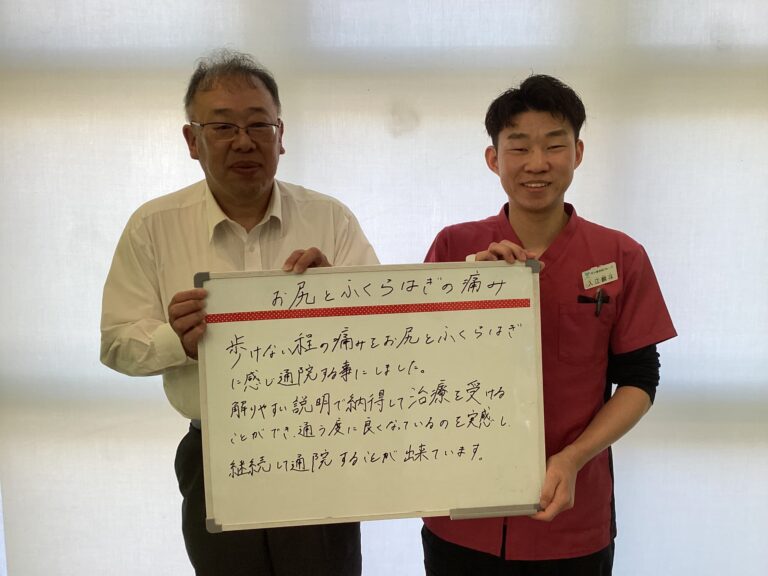 お尻とふくらはぎの痛み
歩けない程の痛みをお尻とふくらはぎ
に感じ通院する事にしました。
解りやすい説明で納得して治療を受ける
ことができ、通う度に良くなっているのを実感し
継続して通院することが出来ています。